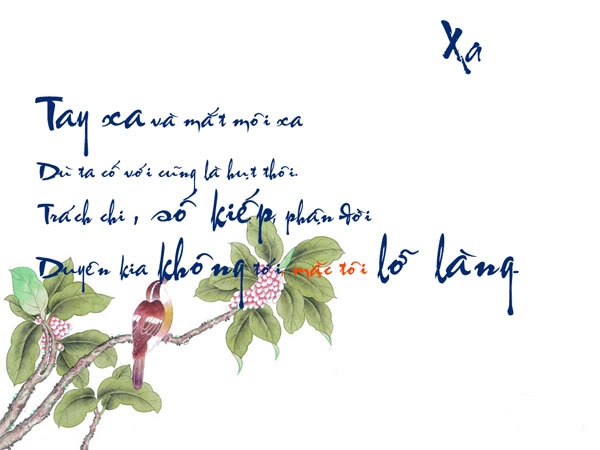 Xa
Tay xa và mắt môi xa
Dù ta cố với cũng là hụt thôi.
Trách chi, số kiếp, phận đời
Duyên kia không tới, mặc tôi lỡ làng.